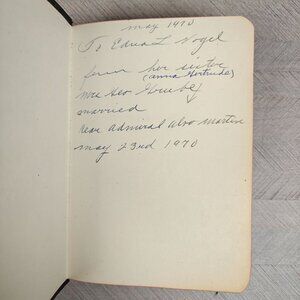 May 1970
To Edna L Vogel
from her sister
(Anna Gertrude)
Mrs Geo Grube
married
Rear Admiral Alvo Martin
May 23rd 1970